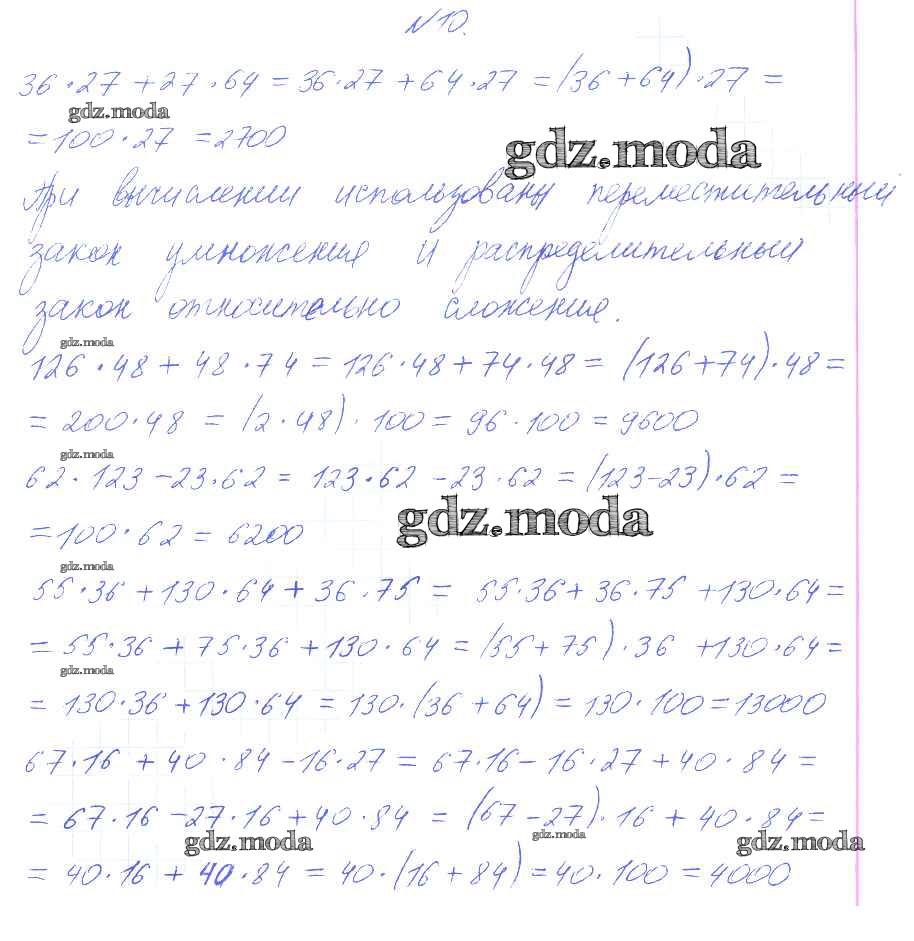 N10.
36·27+27·64=36·27+64·27=(36+64)·27=
gdz.moda
=100·27=2700
gdz.moda
При вычислении использованы переместительный
закон умножения и распределительный
закон относительно сложения.
gdz.moda
126·48+48·74=126·48+74·48=(126+74)·48=
=200·48=(2·48)·100=96·100=9600
gdz.moda
62·123-23·62=123·62-23·62=(123-23)·62=
gdz.moda
=100·62=6200
gdz.moda
55·36+130·64+36·75=55·36+36·75+130·64=
=55·36+75·36+130·64=(55+75)·36+130·64=
gdz.moda
=130·36+130·64=130·(36+64)=130·100=13000
67·16+40·84-16·27=67·16-16·27+40·84=
=67·16-27·16+40·84=(67-27)·16+40·84=
gdz.moda gdz.moda gdz.moda
=40·16+40·84=40·(16+84)=40·100=4000